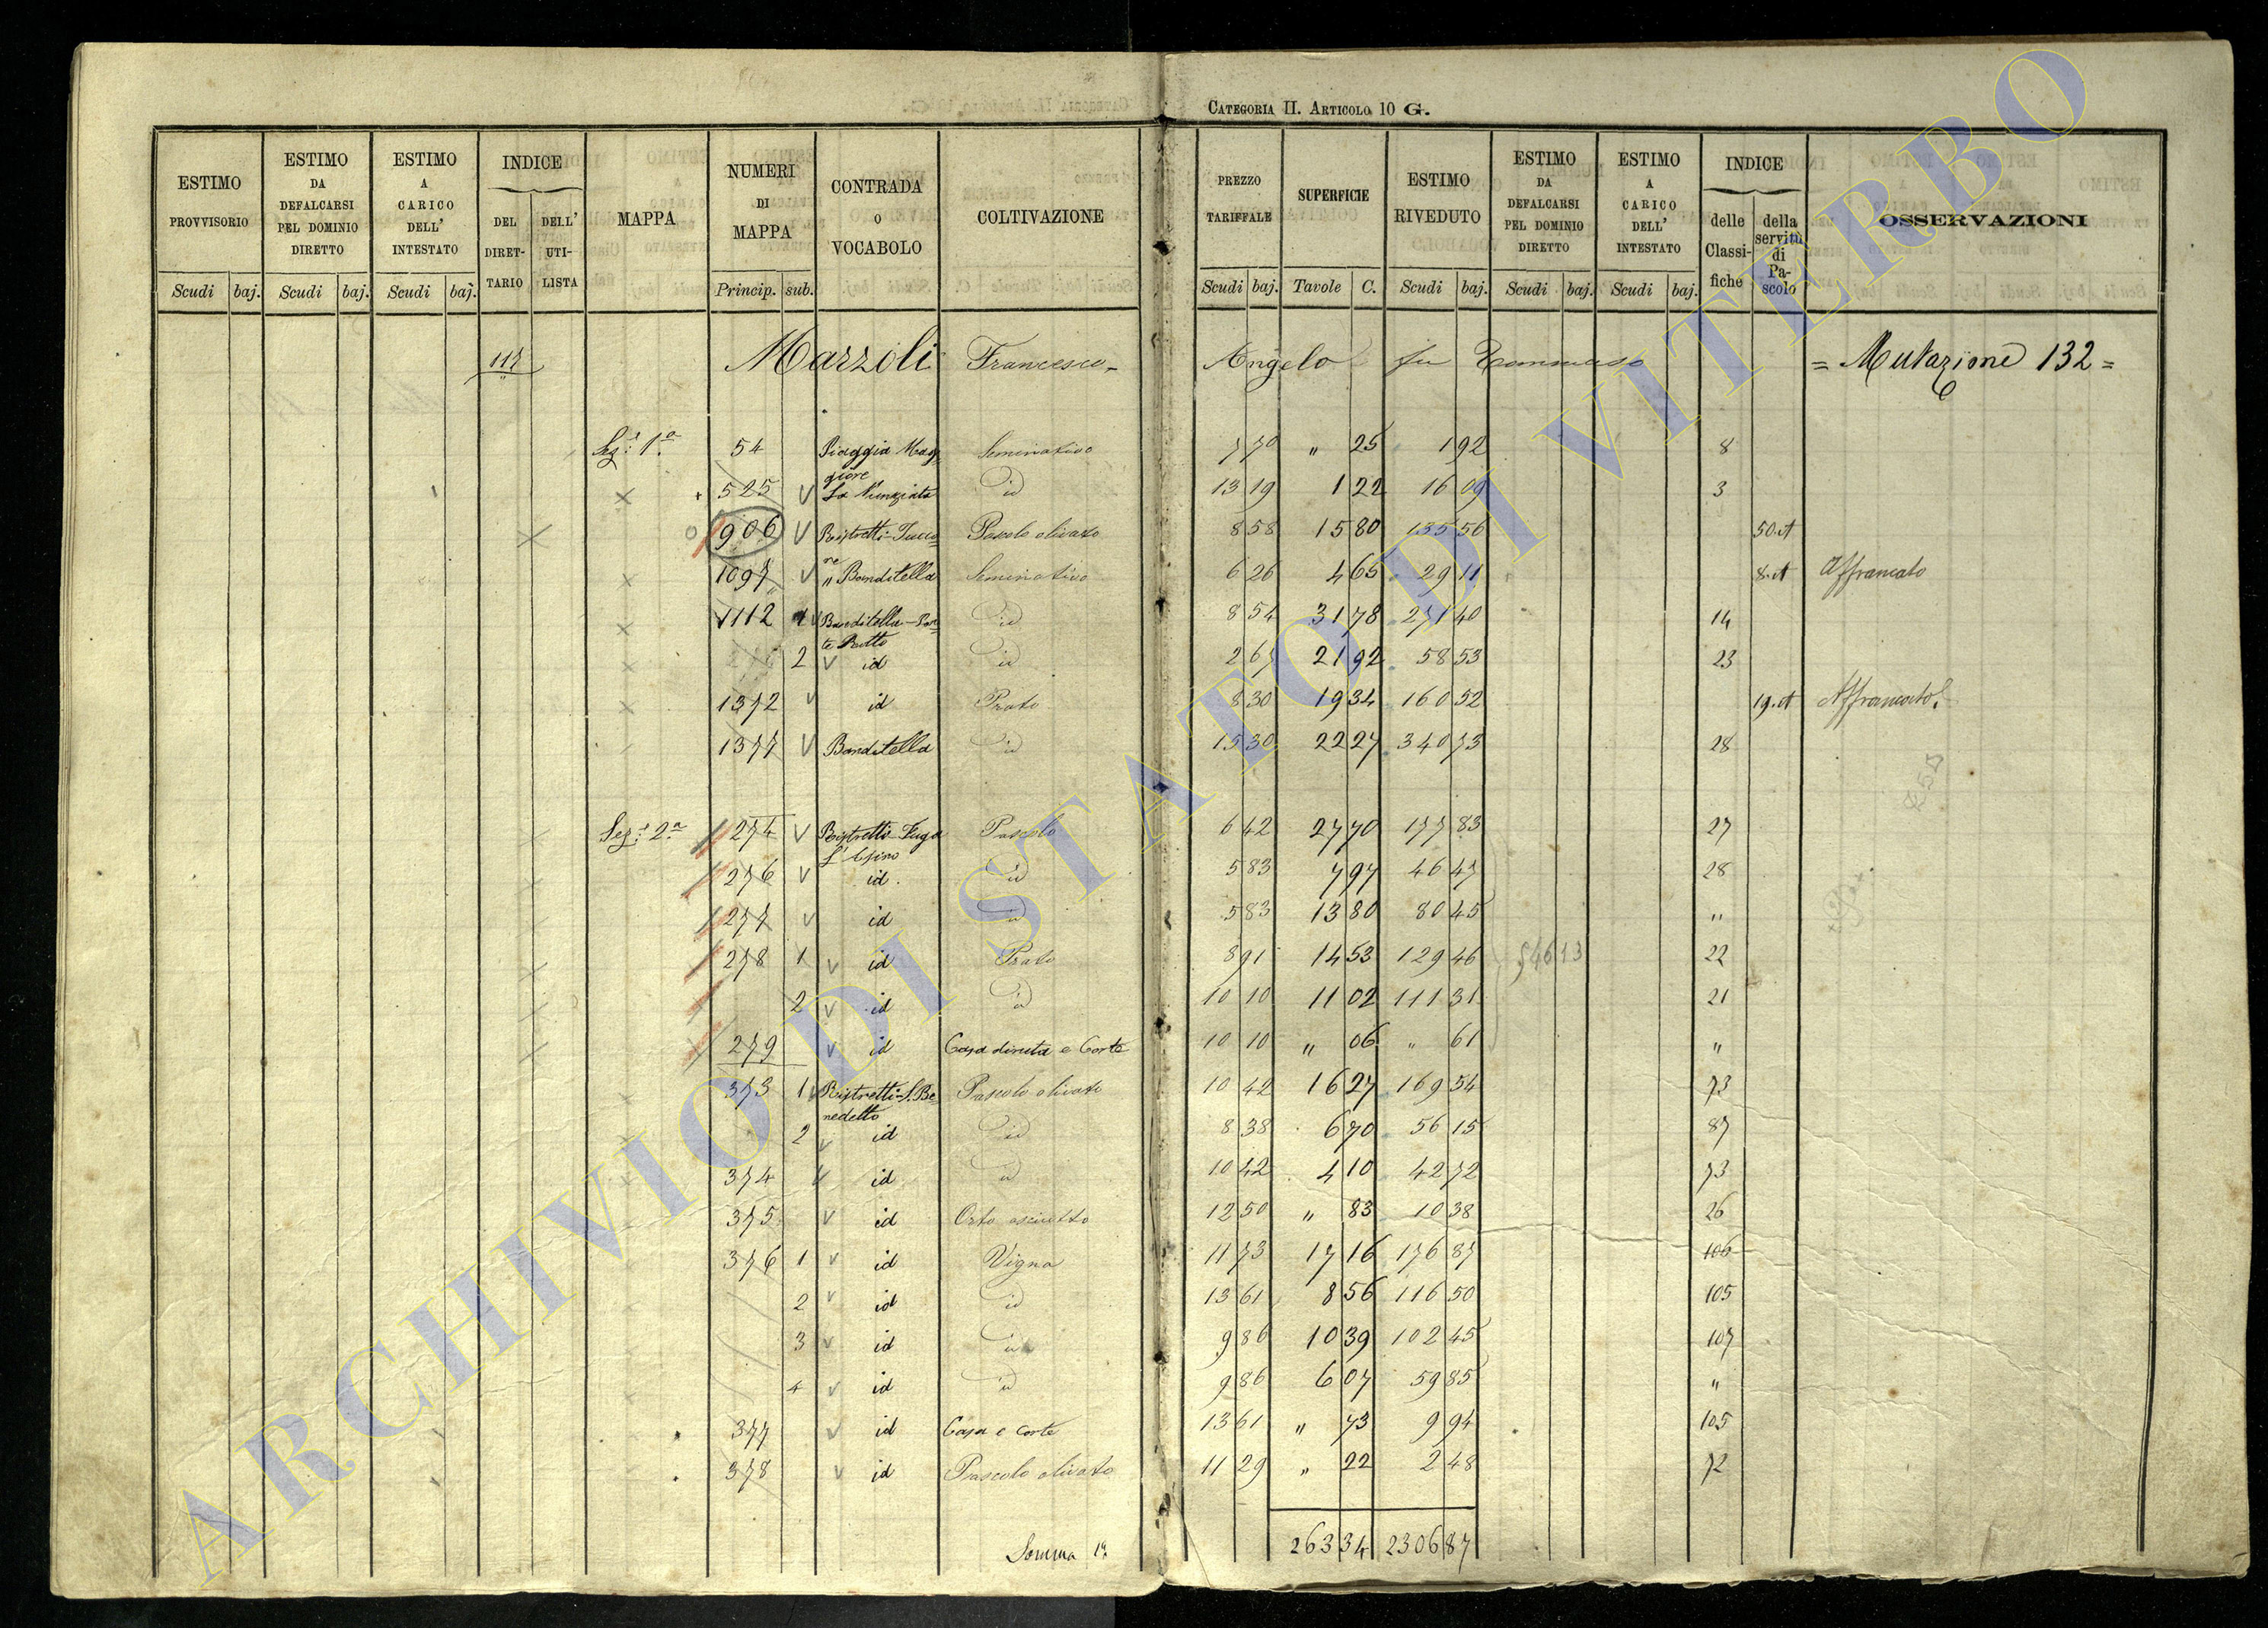 CATEGORIA II. ARTICOLO 10 G.
ESTIMO PROVVISORIO Scudi baj. ESTIMO DA DEFALCARSI PEL DOMINIO DIRETTO Scudi baj. ESTIMO A CARICO DELL' INTESTATO Scudi baj. INDICE DEL DIRETTARIO DELL' UTILISTA MAPPA NUMERI DI MAPPA Princip. sub. CONTRADA O VOCABOLO COLTIVAZIONE
PREZZO TARIFFALE Scudi baj. SUPERFICIE Tavole C. ESTIMO RIVEDUTO Scudi baj. ESTIMO DA DEFALCARSI PEL DOMINIO DIRETTO Scudi baj. ESTIMO A CARICO DELL' INTESTATO Scudi baj. INDICE delle Classifiche della servitù di Pascolo OSSERVAZIONI
117 Marzoli Francesco- Angelo fu Tommaso = Mutazione 132 =
Sez: 1ª 54 Piaggia Maggiore Seminativo 7 70 " 25 1 92 8
525 V La Nunziata id 13 19 1 22 16 09 3
906 V Ristretti- Pascolo olivato 8 58 15 80 135 56 50.A
1097 V " Banditella Seminativo 6 26 4 65 29 11 8.A Affrancato
1112 1 V Banditella-Ponte Rotto id 8 54 31 78 271 40 14
2 V id id 2 67 21 92 58 53 23
1372 V id Prato 8 30 19 34 160 52 19.A Affrancato
1377 V Banditella id 15 30 22 27 340 73 28
Sez: 2ª 274 V Ristretti- Pascolo 6 42 27 70 177 83 27
276 V id id 5 83 7 97 46 47 28
277 V id id 5 83 13 80 80 45 "
278 1 V id Prato 8 91 14 53 129 46 546 13 22
2 V id id 10 10 11 02 111 31 21
279 V id Casa diruta e Corte 10 10 " 06 " 61 "
373 1 V Ristretti-S. Benedetto Pascolo olivato 10 42 16 27 169 54 73
2 V id id 8 38 6 70 56 15 87
374 V id id 10 42 4 10 42 72 73
375 V id Orto asciutto 12 50 " 83 10 38 26
376 1 V id Vigna 11 73 17 16 176 87 106
2 V id id 13 61 8 56 116 50 105
3 V id id 9 86 10 39 102 45 107
4 V id id 9 86 6 07 59 85 "
377 V id Casa e Corte 13 61 " 73 9 94 105
378 V id Pascolo olivato 11 29 " 22 2 48 72
Somma 263 34 2306 87
ARCHIVIO DI STATO DI VITERBO